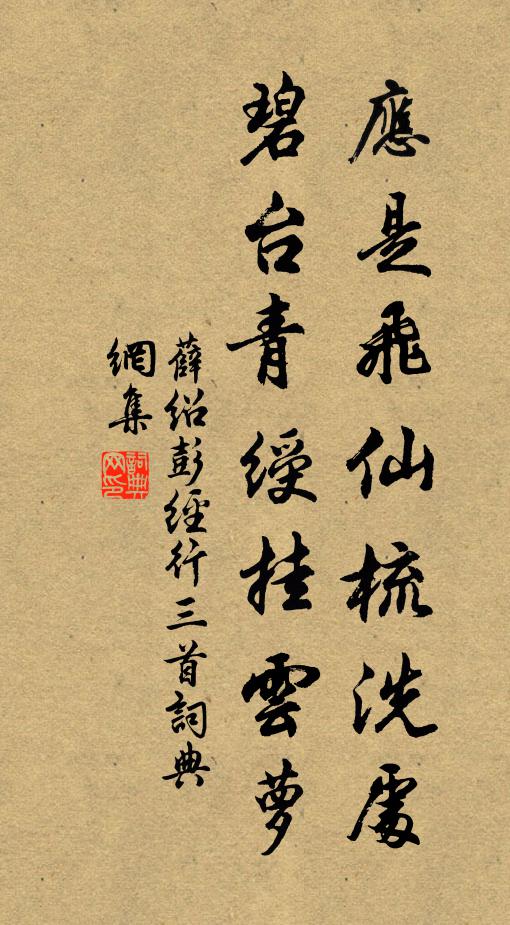 應是飛仙梳洗處
碧台青綬挂雲夢
薛紹彭經行三首詞典
網集
詞典
网印